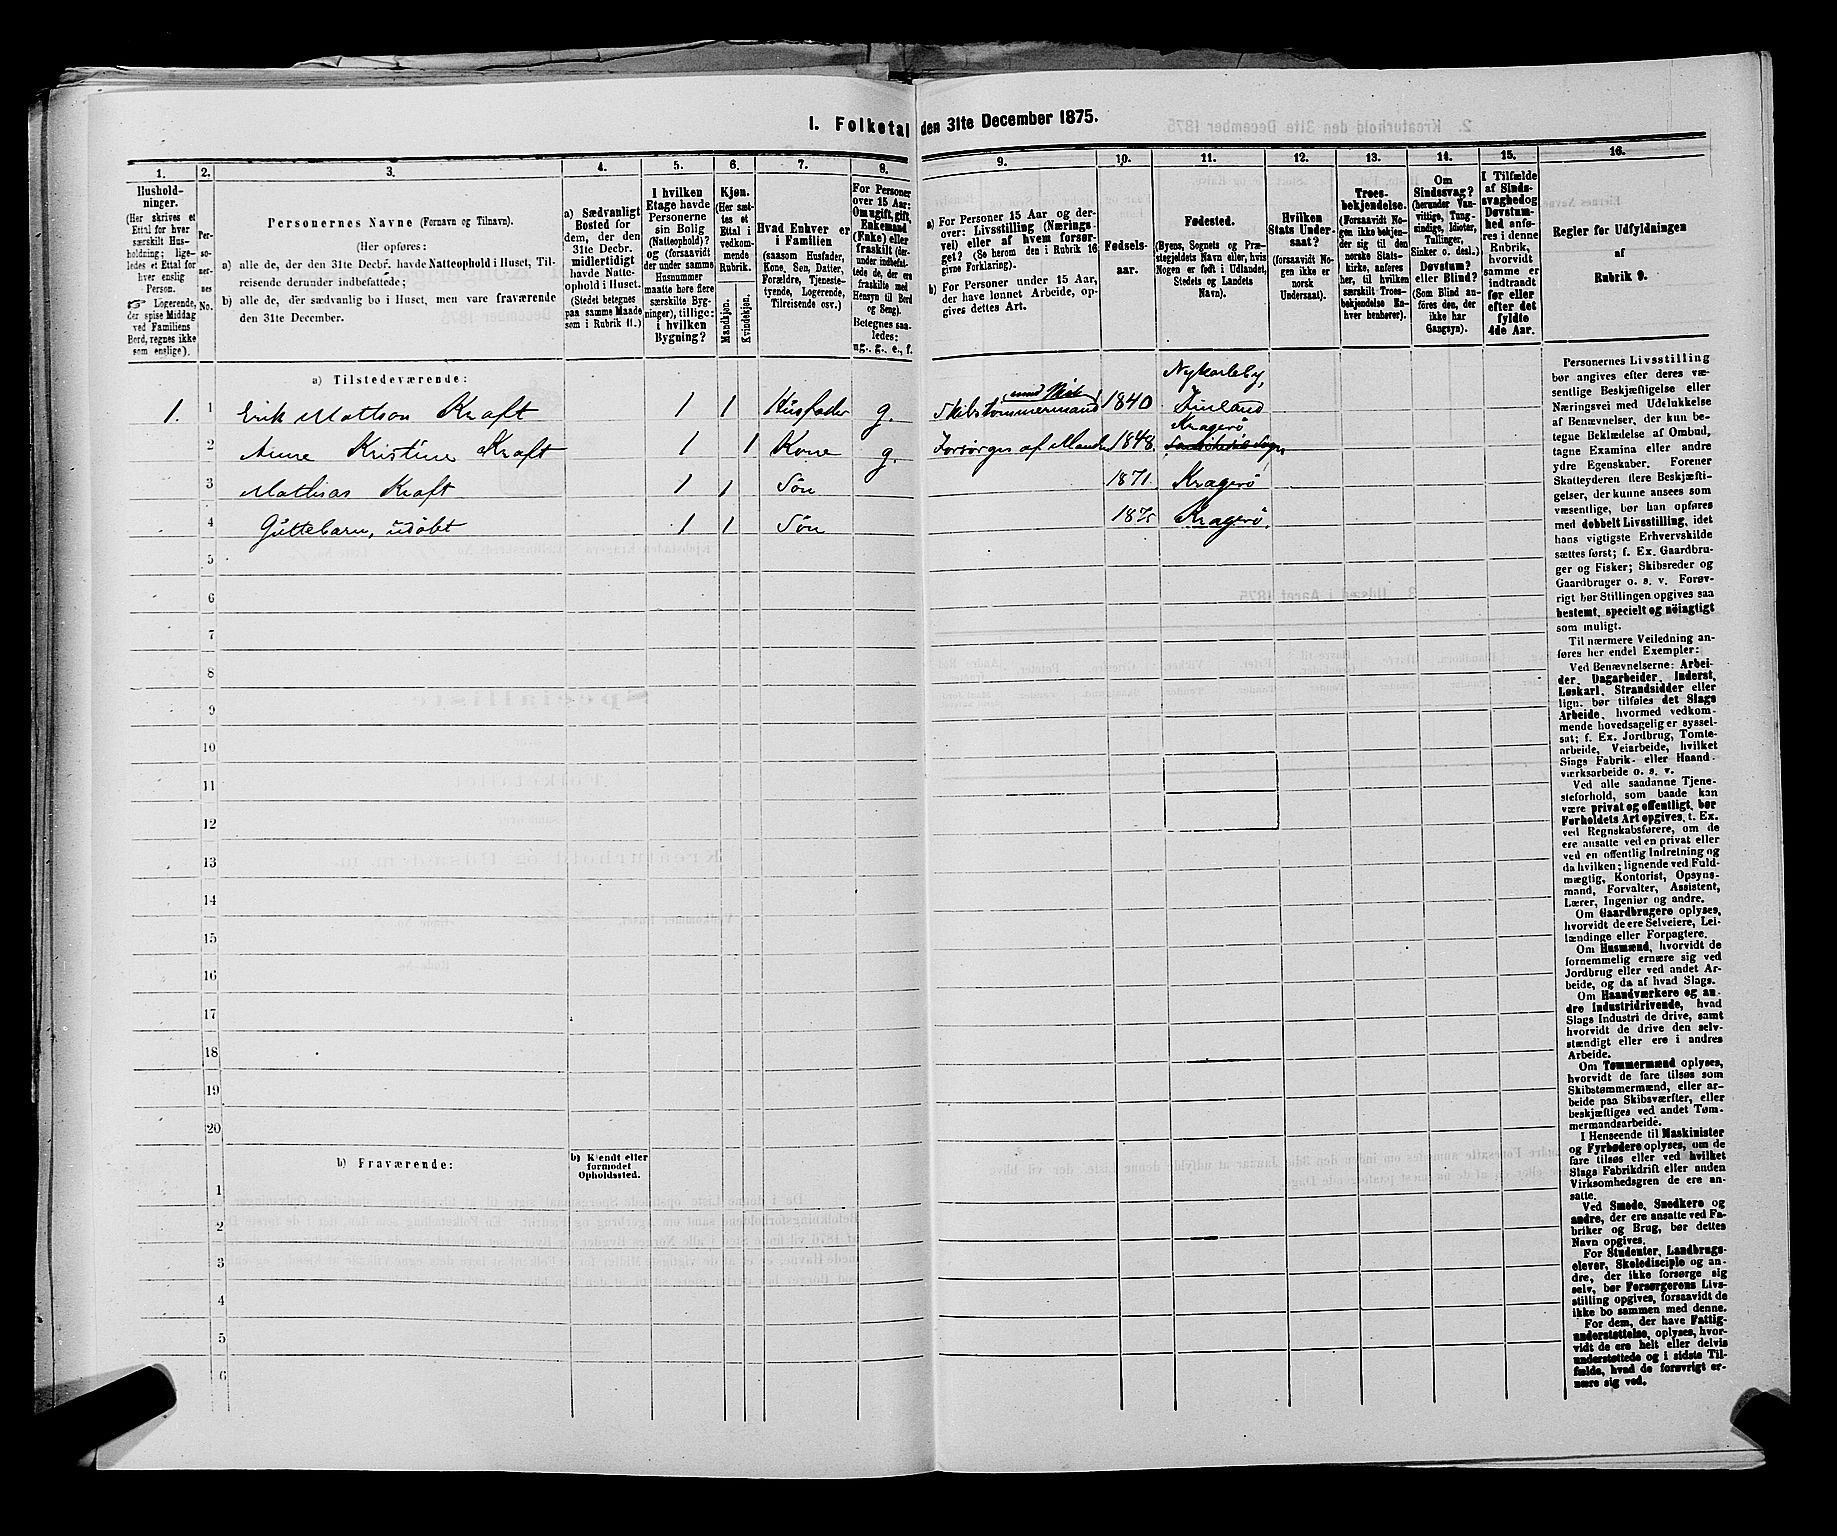 1. Folketal den 31te December 1875.
1. 2. 3. 4. 5. 6. 7. 8. 9. 10. 11. 12. 13. 14. 15. 16.
Hushold-
ninger.
(Her skrives et
Ettal for hver
særskilt Hus-
holdning; lige-
ledes et Ettal for
hver enslig
Person.
☞ Logerende,
der spise Middag
ved Familiens
Bord, regnes ikke
som enslige).
Per-
so-
ner-
nes
No.
Personernes Navne (Fornavn og Tilnavn).
(Her opføres:
a) alle de, der den 31te Decbr. havde Natteophold i Huset, Til-
reisende derunder indbefattede;
b) alle de, der sædvanlig bo i Huset, men vare fraværende
den 31te December.
a) Sædvanligt
Bosted for
dem, der den
31te Decbr.
midlertidigt
havde Natte-
ophold i Huset.
(Stedet betegnes
paa samme Maade
som i Rubrik 11.)
I hvilken
Etage havde
Personerne
sin Bolig
(Natteophold)?
og (forsaavidt
der under samme
Husnummer
maatte høre flere
særskilte Byg-
ninger), tillige:
i hvilken
Bygning?
Kjøn.
(Her sæt-
tes et
Ettal i
vedkom-
mende
Rubrik.
Mandkjøn.
Kvindekjøn.
Hvad Enhver er
i Familien
(saasom Husfader,
Kone, Søn, Datter,
Forældre, Tjeneste-
tyende, Logerende,
Tilreisende osv.)
For Personer
over 15 Aar:
Om ugift, gift,
Enkemand
(Enke) eller
fraskilt (der-
under indbefat-
tede de, der ere
fraskilte med
Hensyn til Bord
og Seng).
Betegnes saa-
ledes:
ug., g., e., f.
a) For Personer 15 Aar og der-
over: Livsstilling (Nærings-
vei) eller af hvem forsør-
get? (Se herom den i Rubrik 16
givne Forklaring).
b) For Personer under 15 Aar,
der have lønnet Arbeide, op-
gives dettes Art.
Fødsels-
aar.
Fødested.
(Byens, Sognets og Præ-
stegjeldets Navn eller, hvis
Nogen er født i Udlandet,
Stedets og Landets
Navn).
Hvilken
Stats Under-
saat?
(forsaavidt No-
gen ikke er
norsk
Undersaat).
Troes-
bekjendelse.
(Forsaavidt No-
gen ikke bekjen-
der sig til den
norske Stats-
kirke, anføres
her, til hvilken
særskilt Troes-
bekjendelse En-
hver henhører).
Om
Sindssvag?
(herunder Van-
vittige, Tung-
sindige, Idioter,
Tullinger,
Sinker o. desl.)
Døvstum?
eller Blind?
(Som Blind an-
føres den, der
ikke har
Gangsyn).
I Tilfælde
af Sinds-
svaghed og
Døvstum-
hed anfø-
res i denne
Rubrik,
hvorvidt
samme er
indtraadt
før eller
efter det
fyldte
4de Aar.
Regler for Udfyldningen
af
Rubrik 9.
a) Tilstedeværende:
1. 1 Erik Mattson Kraft 1 1 Husfader g. Skibstømmermand 1840 Nykarleby, Finland
2 Anne Kristine Kraft 1 1 Kone g. Forsørges af Manden 1848 Kragerö
3 Mathias Kraft 1 1 Sön 1871. Kragerö
4 Guttebarn, udöbt 1 1 Sön 1875 Kragerö.
5
6
7
8
9
10
11
12
13
14
15
16
17
18
19
20
b) Fraværende:
b) Kjendt eller
formodet
Opholdssted.
1
2
3
4
5
6
Personernes Livsstilling
bør angives efter deres væ-
sentlige Beskjæftigelse eller
Næringsvei med Udelukkelse
af Benævnelser, der kun be-
tegne Beklædelse af Ombud,
tagne Examina eller andre
ydre Egenskaber. Forener
Skatteyderen flere Beskjæfti-
gelser, der kunne ansees som
væsentlige, bør han opføres
med dobbelt Livsstilling, idet
hans vigtigste Erhvervskilde
sættes først; f. Ex. Gaardbru-
ger og Fisker; Skibsreder og
Gaardbruger o. s. v. Forøv-
rigt bør Stillingen opgives saa
bestemt, specielt og nöiagtigt
som muligt.
Til nærmere Veiledning an-
føres her endel Exempler:
Ved Benævnelserne: Arbei-
der, Dagarbeider, Inderst,
Løskarl, Strandsidder eller
lign. bør tilføies det Slags
Arbeide, hvormed vedkom-
mende hovedsagelig er syssel-
sat; f. Ex. Jordbrug, Tomte-
arbeide, Veiarbeide, hvilket
Slags Fabrik- eller Haand-
værksarbeide o. s. v.
Ved alle saadanne Tjene-
steforhold, som baade kan
være privat og offentligt, bør
Forholdets Art opgives, t. Ex.
ved Regnskabsførere, om de
ere ansatte ved en privat eller
ved en offentlig Indretning og
da hvilken; lignende ved Fuld-
mægtig, Kontorist, Opsyns-
mand, Forvalter, Assistent,
Lærer, Ingeniør og andre.
Om Gaardbrugere oplyses,
hvorvidt de ere Selveiere, Lei-
lændinge eller Forpagtere.
Om Husmænd, hvorvidt de
fornemmelig ernære sig ved
Jordbrug eller ved andet Ar-
beide, og da af hvad Slags.
Om Haandværkere og an-
dre Industridrivende, hvad
Slags Industri de drive, samt
hvorvidt de drive den selv-
stændigt eller ere i andres
Arbeide.
Om Tømmermænd oplyses,
hvorvidt de fare tilsøs som
Skibstømmermænd, eller ar-
beide paa Skibsværfter, eller
beskjæftiges ved andet Tøm-
mermandsarbeide.
I Henseende til Maskinister
og Fyrbødere oplyses, om de
fare tilsøs eller ved hvilket
Slags Fabrikdrift eller anden
Virksomhedsgren de ere an-
satte.
Ved Smede, Snedkere og
andre, der ere ansatte ved Fa-
briker og Brug, bør dettes
Navn opgives.
For Studenter, Landbrugs-
elever, Skoledisciple og an-
dre, der ikke forsørge sig
selv, bør Forsørgerens Livs-
stilling opgives, forsaavidt de
ikke bo sammen med denne.
For dem, der have Fattig-
understøttelse, oplyses, hvor-
vidt de ere helt eller delvis
understøttede og i sidste Til-
fælde, hvad de forøvrigt er-
nære sig ved.